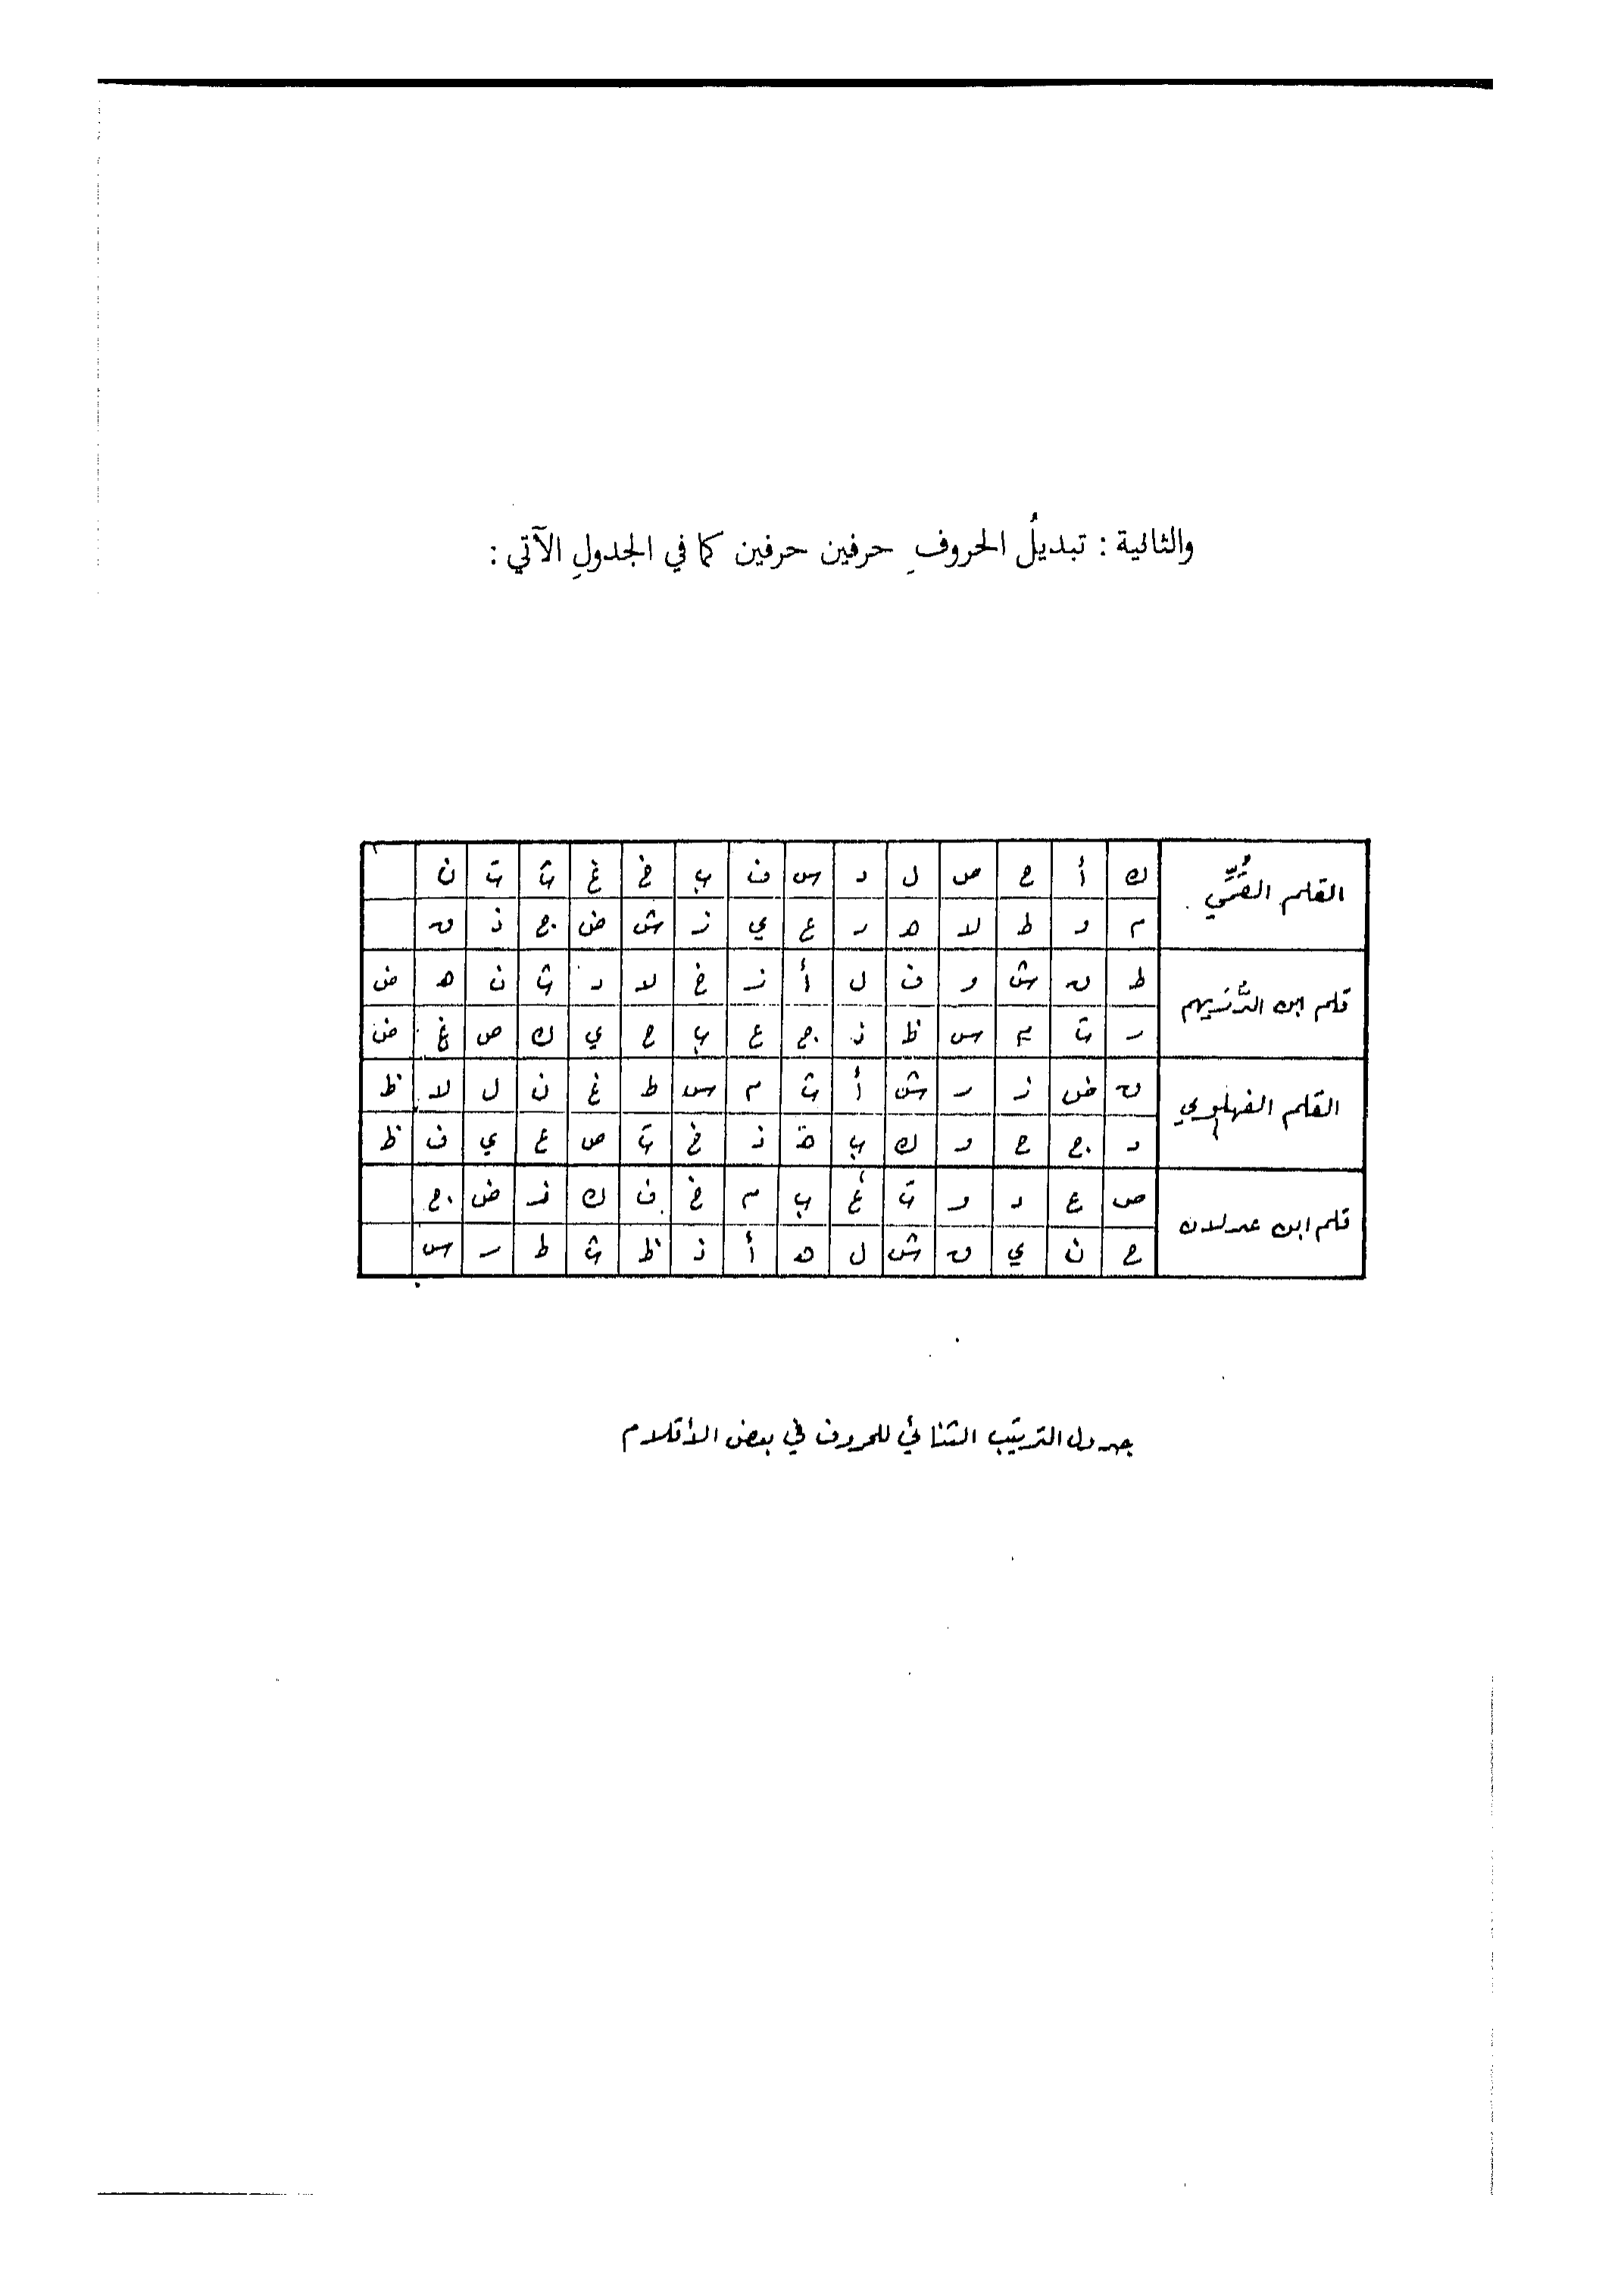 والثانية : تبديلُ الحروفِ حرفين حرفين كما في الجدولِ الآتي :
القلم القمّي ك أ ح ص ل د س ف ب خ غ ث ت ن
م و ط لا هـ ر ع ي ز ش ض ج ذ ق
قلم ابن الدُّريهم ط ق ش و ف ل أ ز خ لا د ث ن هـ ض
ر ت م س ظ ذ ج ع ب ح ي ك ص غ ض
القلم الفهلوي ق ض ز ر ش أ ث م س ط غ ن ل لا ظ
د ج ح و ك ب هـ ذ خ ت ص ع ي ف ظ
قلم ابن عدلان ص ع د و ت غ ب م خ ف ك ز ض ج
ح ن ي ق ش ل هـ أ ذ ظ ث ط ر س
جدول الترتيب الثنائي للحروف في بعض الأقلام